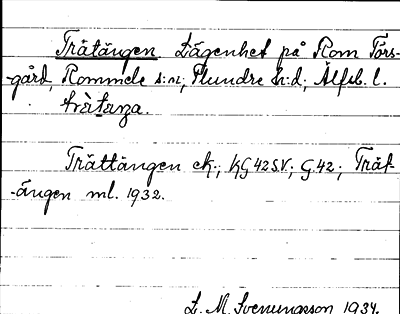 Trätången Lägenhet på Rom Tors-
-gård, Rommele s:n; Flundre h:d; Älfsb. l.
trätaŋa.
Trättången ek.; KG 42 S.V.; G. 42; Trät-
-ången ml. 1932.
L. M. Svenungsson 1934.